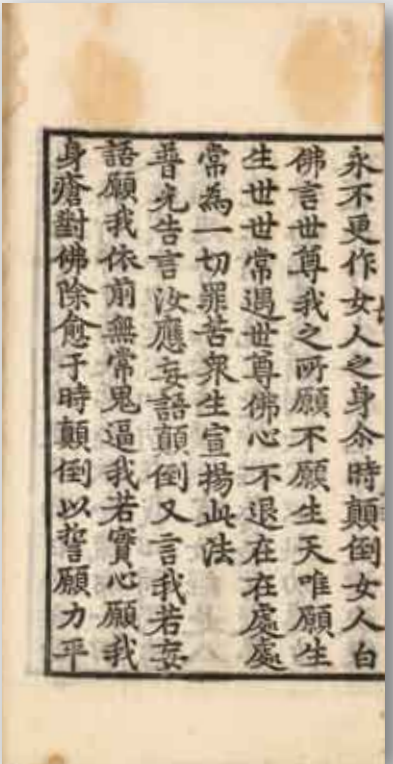 永不更作女人之身尒時顛倒女人白
佛言世尊我之所願不願生天唯願生
生世世常遇世尊佛心不退在在處處
常為一切罪苦衆生宣揚此法
普光告言汝應妄語顛倒又言我若妄
語願我依前無常鬼逼我若實心願我
身瘡對佛除愈于時顛倒以誓願力平